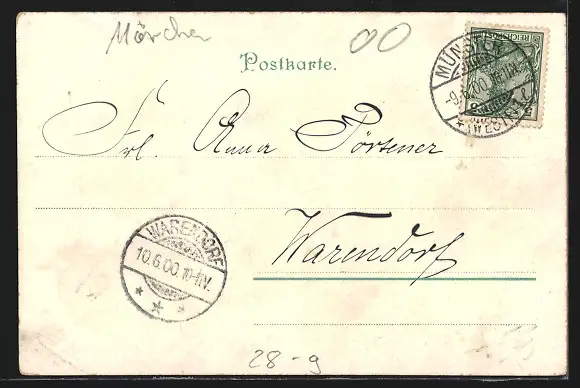 Märchen
00
Postkarte.
REICHSPOST
MÜNSTER
-9.6.00.10-11V.
*(WESTF.)1l
Frl. Anna Pörtener
WARENDORF
10.6.00.10-11V.
Warendorf
28-9